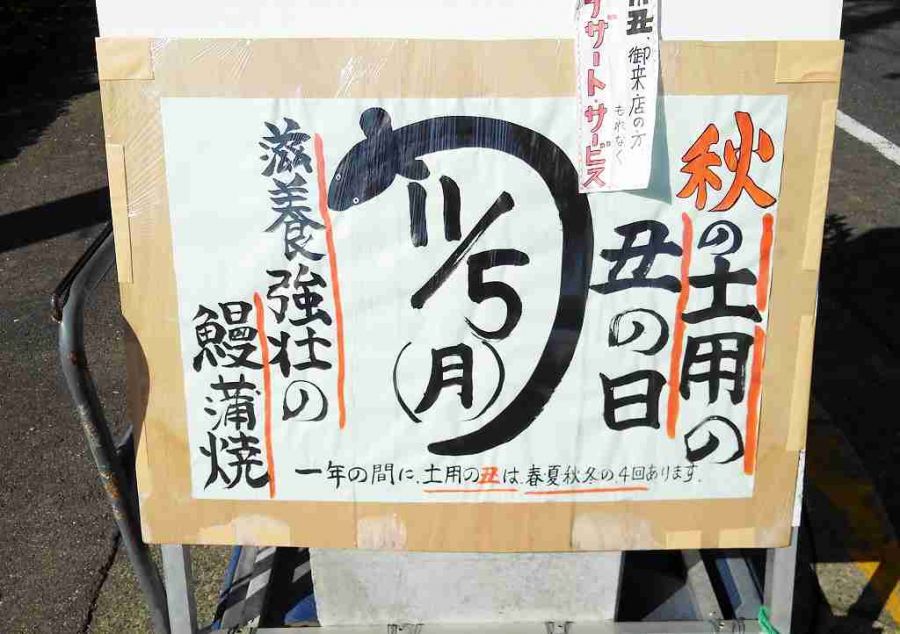 丑
御来店の方
もれなく
デザート・サービス
秋の土用の
丑の日
11/5
(月)
滋養強壮の
鰻蒲焼
一年の間に、土用の丑は、春・夏・秋・冬の、4回あります。